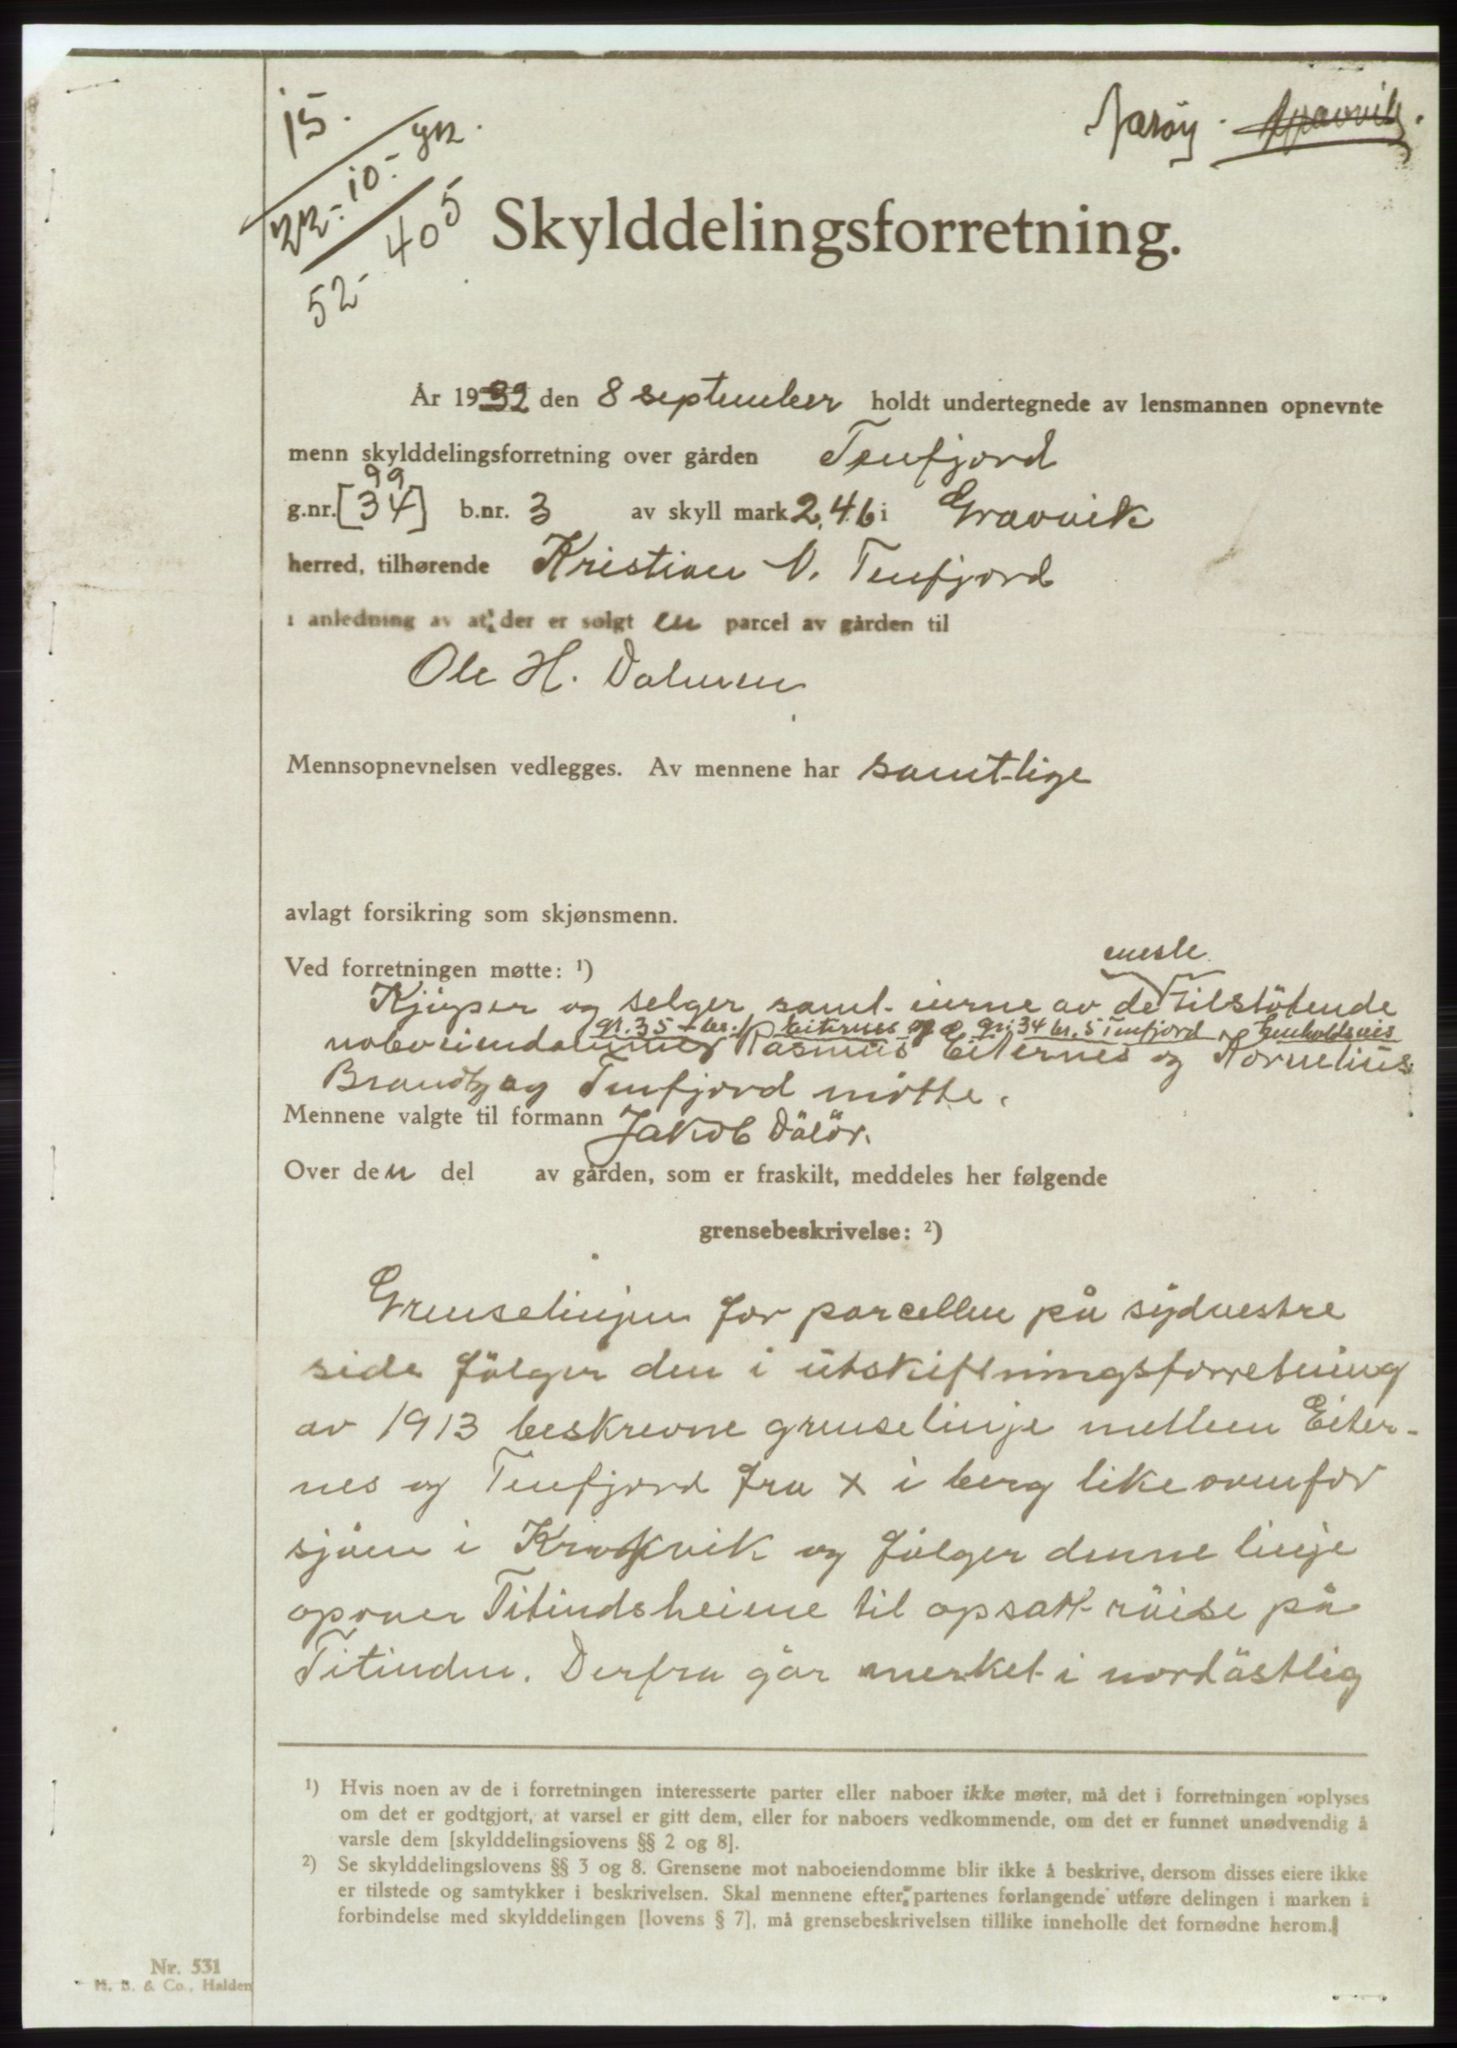 15.
22-10- 
52- 405
Nærøy. Gravvik.
Skylddelingsforretning.
År 1932 den 8 september holdt undertegnede av lensmannen opnevnte
menn skylddelingsforretning over gården Tenfjord
99
g.nr. [34] b.nr. 3 av skyll mark 2,46 i Gravvik
herred, tilhørende Kristian N. Tenfjord
i anledning av at der er solgt en parcel av gården til
Ole H. Dalmen
Mennsopnevnelsen vedlegges. Av mennene har samtlige
avlagt forsikring som skjønsmenn.
eneste
Ved forretningen møtte: ¹)
Kjøper og selger samt eierne av de tilstøtende
gr. 35 br. 1 Eiternes og gr. 34 br. 5 Tenfjord henholdsvis
naboeiendommer Rasmus Eiternes og Kornelius
Brandtzæg Tenfjord møtte.
Mennene valgte til formann Jakob Dålør.
Over den del av gården, som er fraskilt, meddeles her følgende
grensebeskrivelse: ²)
Grenselinjen for parcellen på sydvestre
side følger den i utskiftningsforretning
av 1913 beskrevne grenselinje mellem Eiter-
nes og Tenfjord fra x i berg like ovenfor
sjøen i Krokvik og følger denne linje
opover Titindsheiene til opsatt røise på
Titinden. Derfra går merket i nordøstlig
¹) Hvis noen av de i forretningen interesserte parter eller naboer ikke møter, må det i forretningen oplyses
om det er godtgjort, at varsel er gitt dem, eller for naboers vedkommende, om det er funnet unødvendig å
varsle dem [skylddelingslovens §§ 2 og 8].
²) Se skylddelingslovens §§ 3 og 8. Grensene mot naboeiendomme blir ikke å beskrive, dersom disses eiere ikke
er tilstede og samtykker i beskrivelsen. Skal mennene efter partenes forlangende utføre delingen i marken i
forbindelse med skylddelingen [lovens § 7], må grensebeskrivelsen tillike inneholle det fornødne herom.
Nr. 531
H. B. & Co., Halden